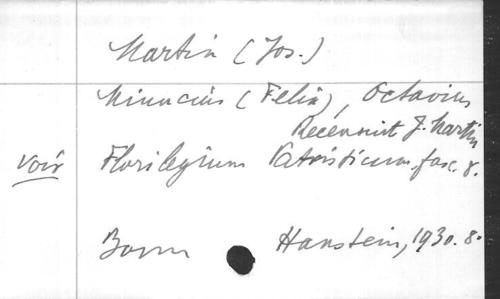 Martin (Jos.)
Minucius (Felix), Octavius
Recensuit J. Martin
voir Florilegium Patristicum, fasc. 8.
Bonn Hanstein, 1930. 8º